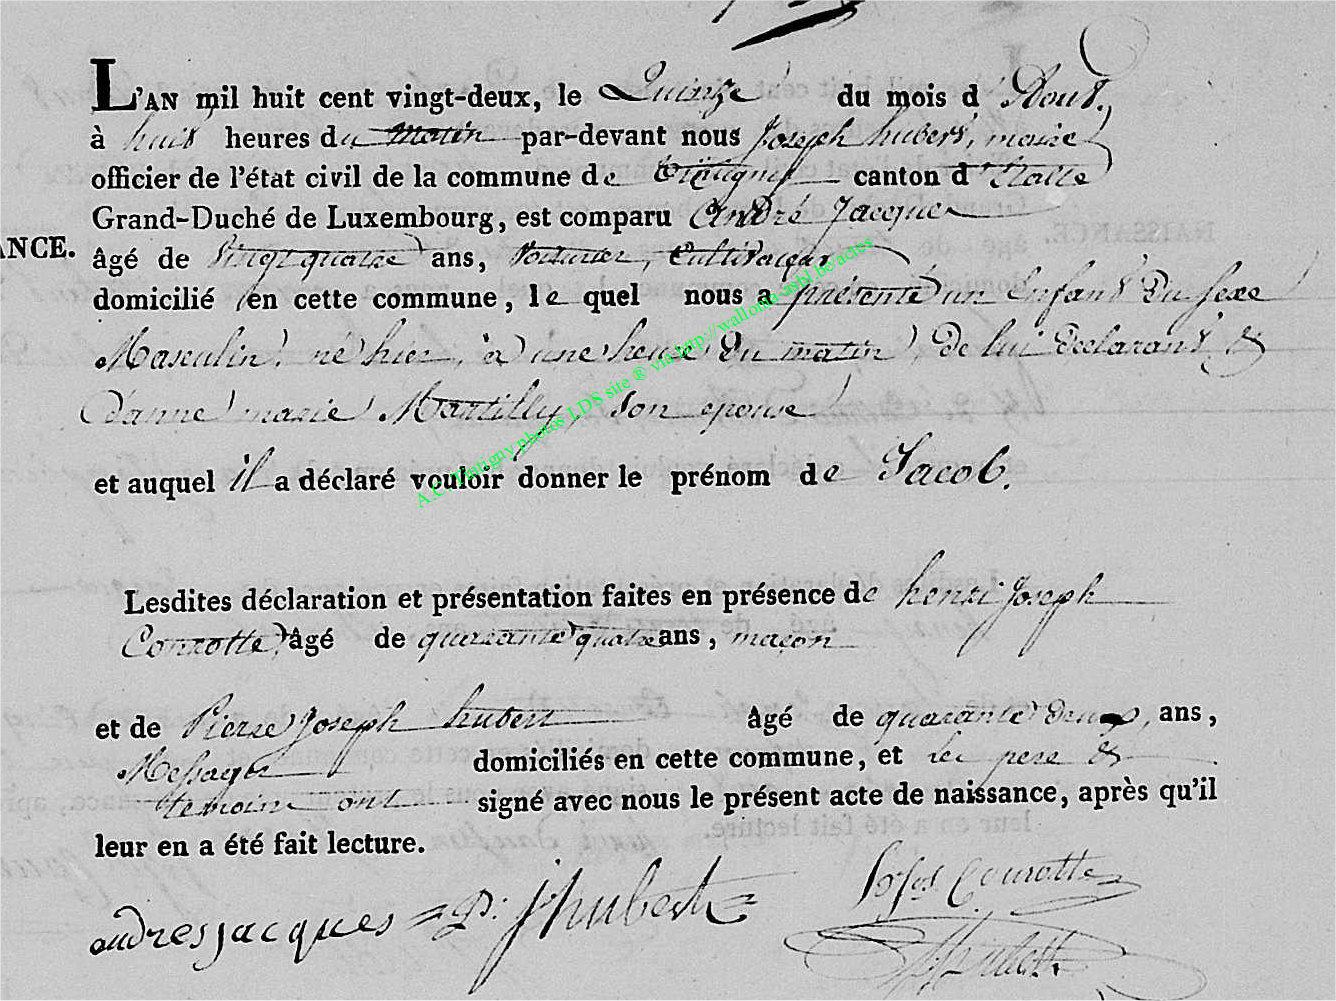 L'AN mil huit cent vingt-deux, le Quinze du mois d'Aout.
à huit heures du matin par-devant nous Joseph hubert, maire
officier de l'état civil de la commune de Tintigny canton d'Etalle
Grand-Duché de Luxembourg, est comparu André Jacques
ANCE.
âgé de Vingt quatre ans, Voiturier, Cultivateur
domicilié en cette commune, le quel nous a présenté un Enfant du sexe
Masculin, né hier, à une heure du matin, de lui declarant, &
d'anne marie Martilly, son epouse
et auquel il a déclaré vouloir donner le prénom de Jacob.
Lesdites déclaration et présentation faites en présence de henri Joseph
Conrotte, âgé de quarante quatre ans, maçon
et de Pierre Joseph hubert âgé de quarante deux, ans,
Messager domiciliés en cette commune, et les pere &
temoins ont signé avec nous le présent acte de naissance, après qu'il
leur en a été fait lecture.
andres jacques P: J hubert
Conrotte
A.C. Tintigny photos LDS site ® via http://wallonia-asbl.be/actes
NAISSANCE.